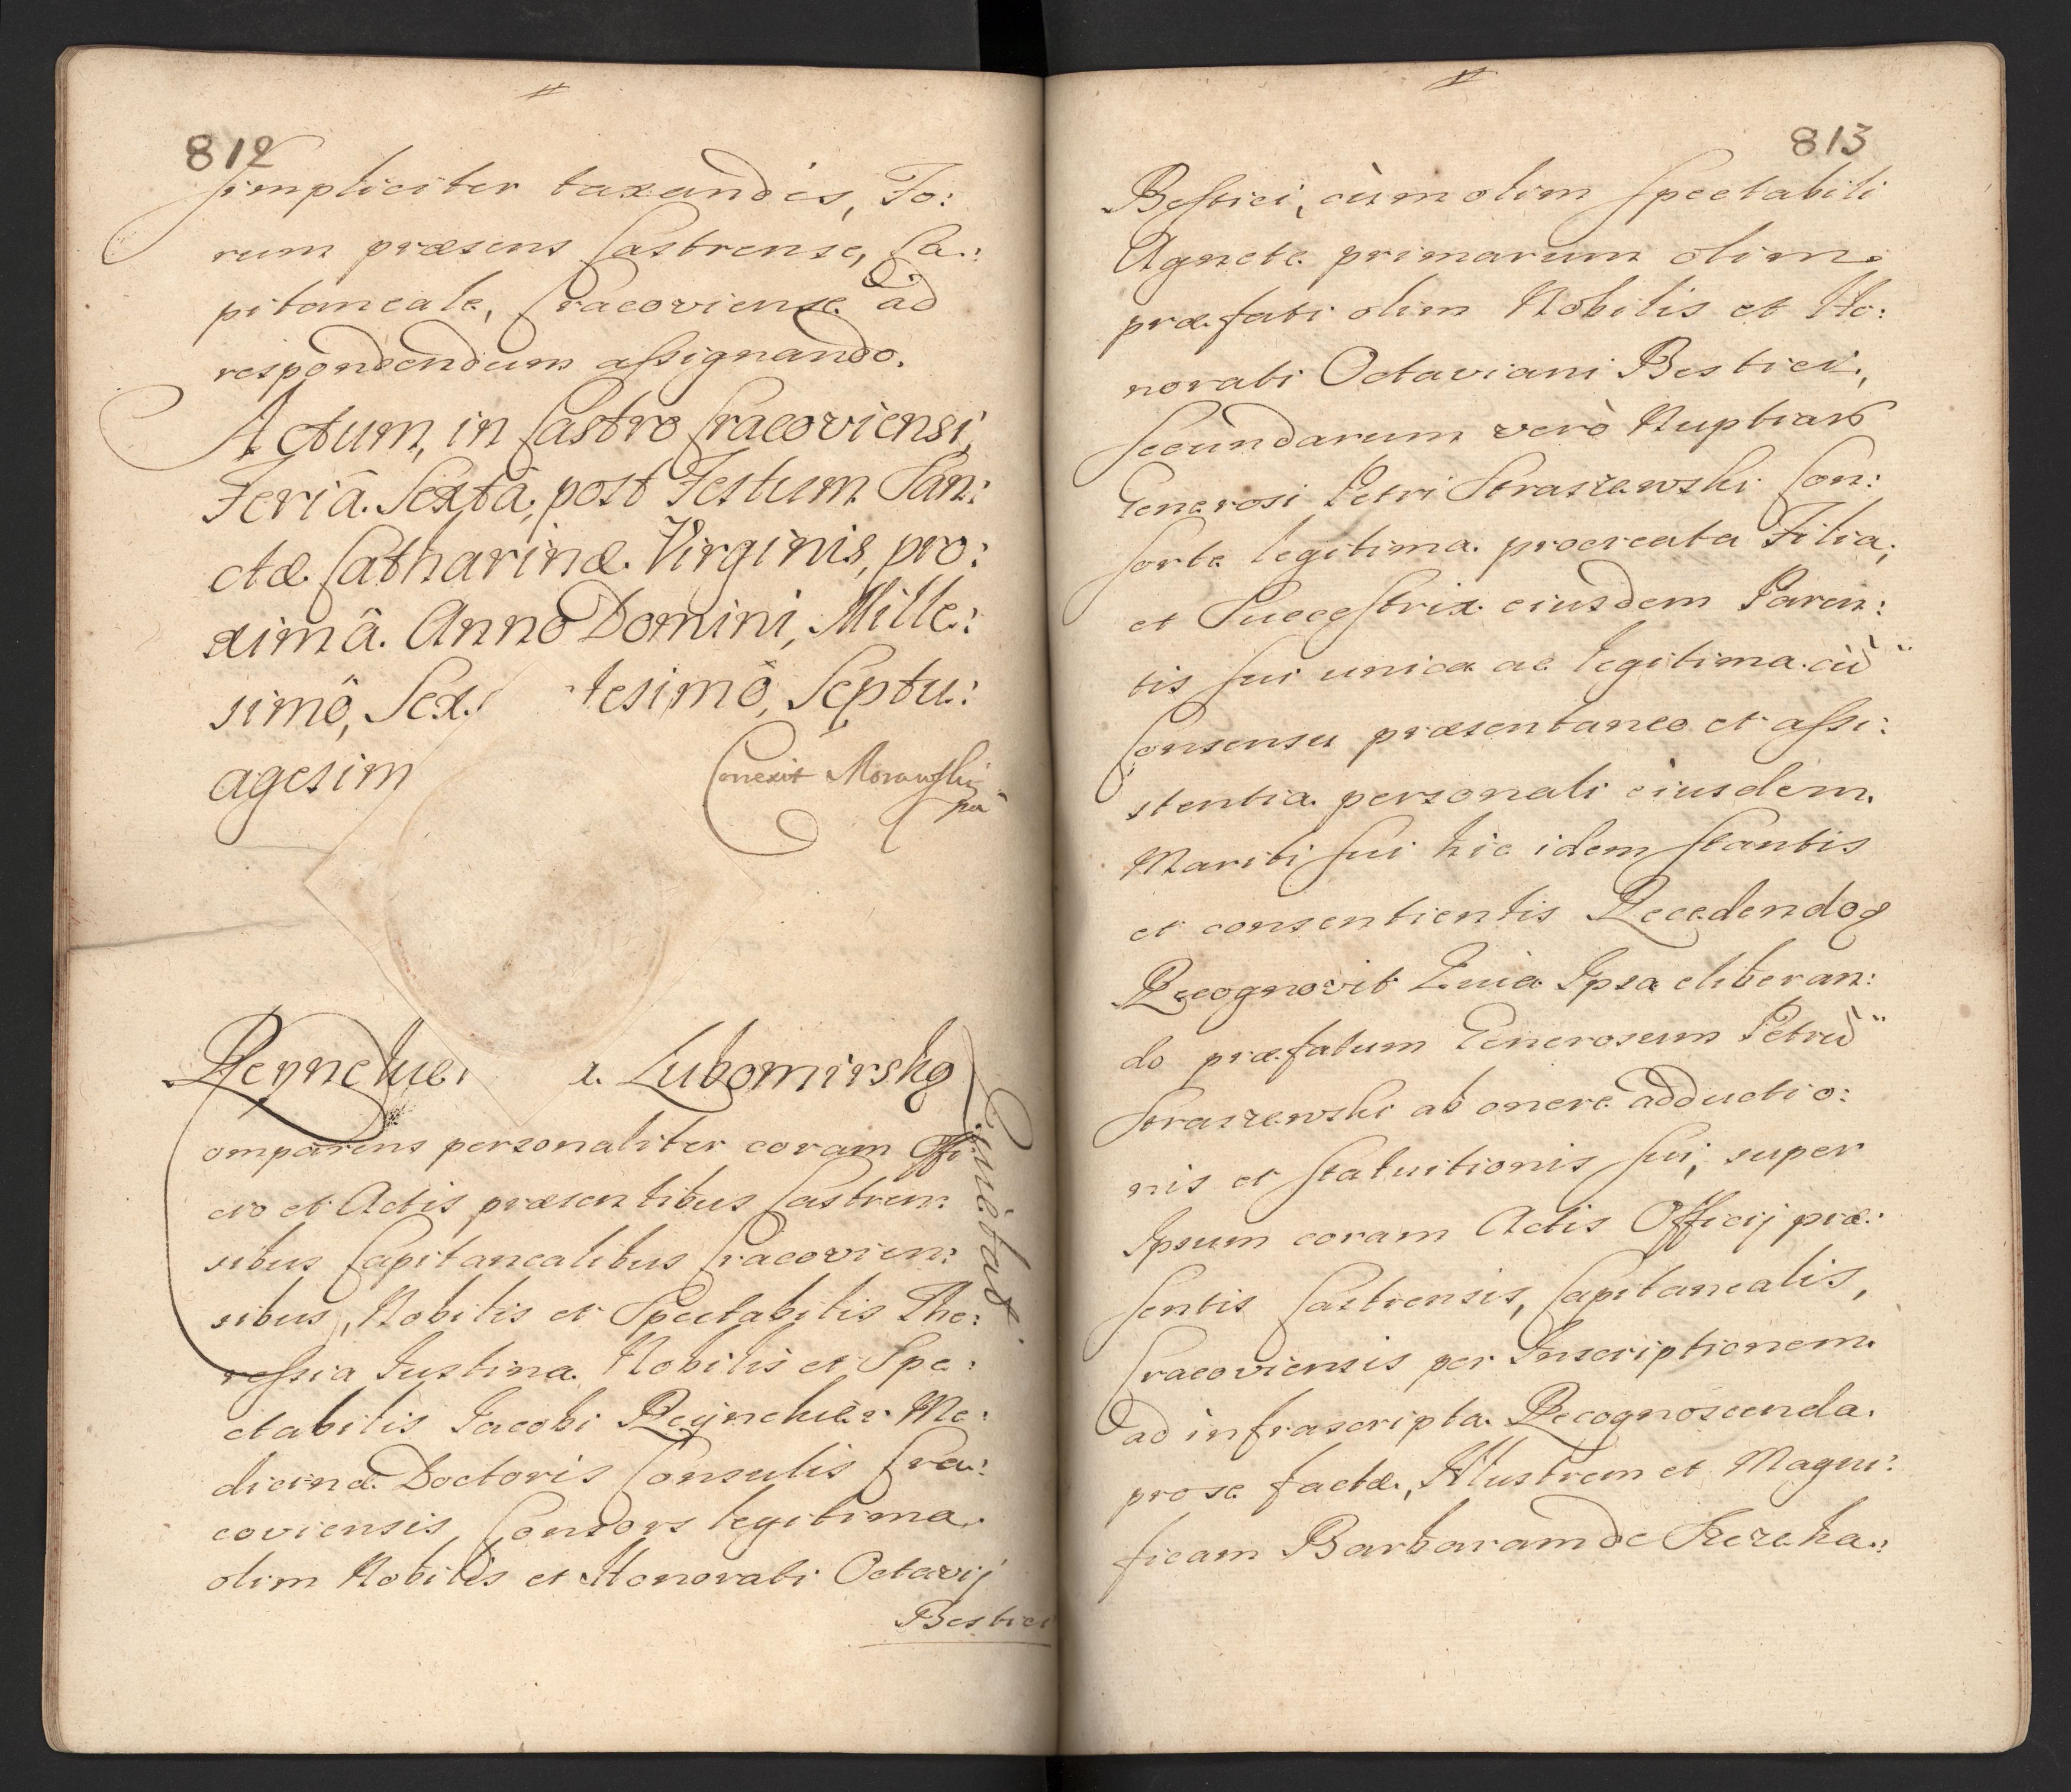 812
simpliciter taxandis, Fo:
rum præsens Castrense, Ca:
pitaneale, Cracoviense ad
respondendum assignando.
Actum, in Castro Cracoviensi,
Feriâ Sextâ, post Festum San:
ctæ Catharinæ Virginis, pro:
ximâ. Anno Domini, Mille:
simô, Sex tesimô, Septu:
agesim
Conexit Morawski
Reynekier Lubomirsky
omparens personaliter coram Offi:
cio et Actis præsentibus Castren:
sibus Capitanealibus Cracovien:
sibus, Nobilis et Spectabilis The:
ressia Justina Nobilis et Spe:
ctabilis Jacobi Reynekier Me:
dicinæ Doctoris Consulis Cra:
coviensis, Consors legitima
olim Nobilis et Honorati Octavij
Bestici
813
Bestici, cùm olim Spectabili
Agnete primarum olim
præfati olim Nobilis et Ho:
norati Octaviani Bestici,
Secundarum verò Nuptiar
Generosi Petri Straszewski Con:
sorte legitima procreata Filia,
et Successtrix eiusdem Paren:
tis sui unica ac legitima cù
Consensu præsentaneo et assi:
stentia personali eiusdem
Mariti sui hic idem stantis
et consentientis Recedendo
Recognovit Quia Ipsa eliberan:
do præfatum Generosum Petrù
Straszewski ab onere adductio:
nis et statuitionis sui, super
Ipsum coram Actis Officij præ:
sentis Castrensis, Capitanealis,
Cracoviensis per Inscriptionem
ad infrascripta Recognoscenda
pro se factæ, Illustrem et Magni:
ficam Barbaram de